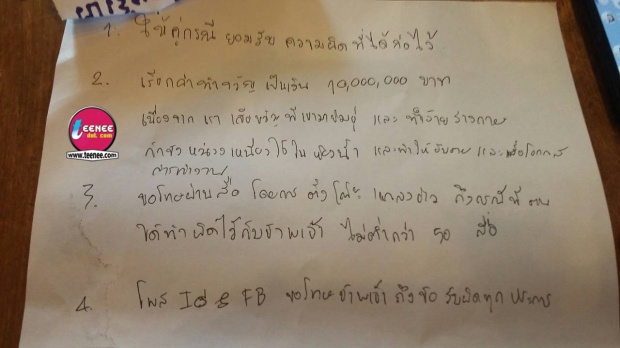 1. ให้คู่กรณี ยอมรับ ความผิดที่ได้ก่อไว้
2. เรียกค่าทำขวัญ เป็นเงิน 10,000,000 บาท
teenee
dot com
www.teenee.com
เนื่องจาก เรา เสียขวัญ ที่เขามาขมขู่ และ ทำร้ายร่างกาย
กักขัง หน่วงเหนี่ยวไว้ใน ห้องน้ำ และทำให้อับอาย และ เสียโอกาส
การทำงาน
3. ขอโทษผ่านสื่อ โดยการ ตั้งโต๊ะ แถลงข่าว ถึงกรณีที่
ได้ทำผิดไว้กับข้าพเจ้า ไม่ต่ำกว่า 50 สื่อ
4. โพส IG & FB ขอโทษข้าพเจ้า ถึงข้อ รับผิดทุก ประการ